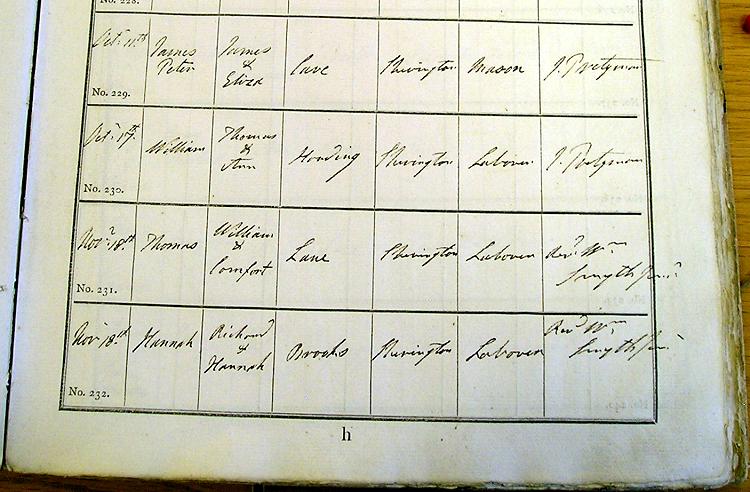 No. 228.
Octr 11th
James
Peter
James
&
Eliza
Lane
Sherington
Mason
J. Pretyman
No. 229.
Octr 17th
William
Thomas
&
Ann
Hooding
Sherington
Labourer
J. Pretyman
No. 230.
Novr 18th
Thomas
William
&
Comfort
Lane
Sherington
Labourer
Revd Wm
Smyth Junr
No. 231.
Novr 18th
Hannah
Richard
&
Hannah
Brooks
Sherington
Labourer
Revd Wm
Smyth Junr
No. 232.
h